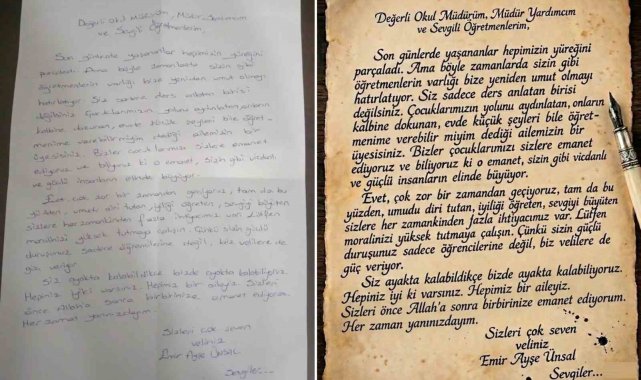 Değerli Okul Müdürüm, Müdür Yardımcım
ve Sevgili Öğretmenlerim,
Son günlerde yaşananlar hepimizin yüreğini
parçaladı. Ama böyle zamanlarda sizin gibi
öğretmenlerin varlığı bize yeniden umut olmayı
hatırlatıyor. Siz sadece ders anlatan birisi
değilsiniz. Çocuklarımızın yolunu aydınlatan, onların
kalbine dokunan, evde küçük şeyleri bile öğret-
menime verebilir miyim dediği ailemizin bir
üyesisiniz. Bizler çocuklarımızı sizlere emanet
ediyoruz ve biliyoruz ki o emanet, sizin gibi vicdanlı
ve güçlü insanların elinde büyüyor.
Evet, çok zor bir zamandan geçiyoruz, tam da bu
yüzden, umudu diri tutan, iyiliği öğreten, sevgiyi büyüten
sizlere her zamankinden fazla ihtiyacımız var. Lütfen
moralinizi yüksek tutmaya çalışın. Çünkü sizin güçlü
duruşunuz sadece öğrencilerine değil, biz velilere de
güç veriyor.
Siz ayakta kalabildikçe bizde ayakta kalabiliyoruz.
Hepiniz iyi ki varsınız. Hepimiz bir aileyiz. Sizleri
önce Allah'a sonra birbirinize emanet ediyorum.
Her zaman yanınızdayım.
Sizleri çok seven
veliniz
Emir Ayşe Ünsal
Sevgiler...
Değerli Okul Müdürüm, Müdür Yardımcım
ve Sevgili Öğretmenlerim,
Son günlerde yaşananlar hepimizin yüreğini
parçaladı. Ama böyle zamanlarda sizin gibi
öğretmenlerin varlığı bize yeniden umut olmayı
hatırlatıyor. Siz sadece ders anlatan birisi
değilsiniz. Çocuklarımızın yolunu aydınlatan, onların
kalbine dokunan, evde küçük şeyleri bile öğret-
menime verebilir miyim dediği ailemizin bir
üyesisiniz. Bizler çocuklarımızı sizlere emanet
ediyoruz ve biliyoruz ki o emanet, sizin gibi vicdanlı
ve güçlü insanların elinde büyüyor.
Evet, çok zor bir zamandan geçiyoruz, tam da bu
yüzden, umudu diri tutan, iyiliği öğreten, sevgiyi büyüten
sizlere her zamankinden fazla ihtiyacımız var. Lütfen
moralinizi yüksek tutmaya çalışın. Çünkü sizin güçlü
duruşunuz sadece öğrencilerine değil, biz velilere de
güç veriyor.
Siz ayakta kalabildikçe bizde ayakta kalabiliyoruz.
Hepiniz iyi ki varsınız. Hepimiz bir aileyiz.
Sizleri önce Allah'a sonra birbirinize emanet ediyorum.
Her zaman yanınızdayım.
Sizleri çok seven
veliniz
Emir Ayşe Ünsal
Sevgiler...